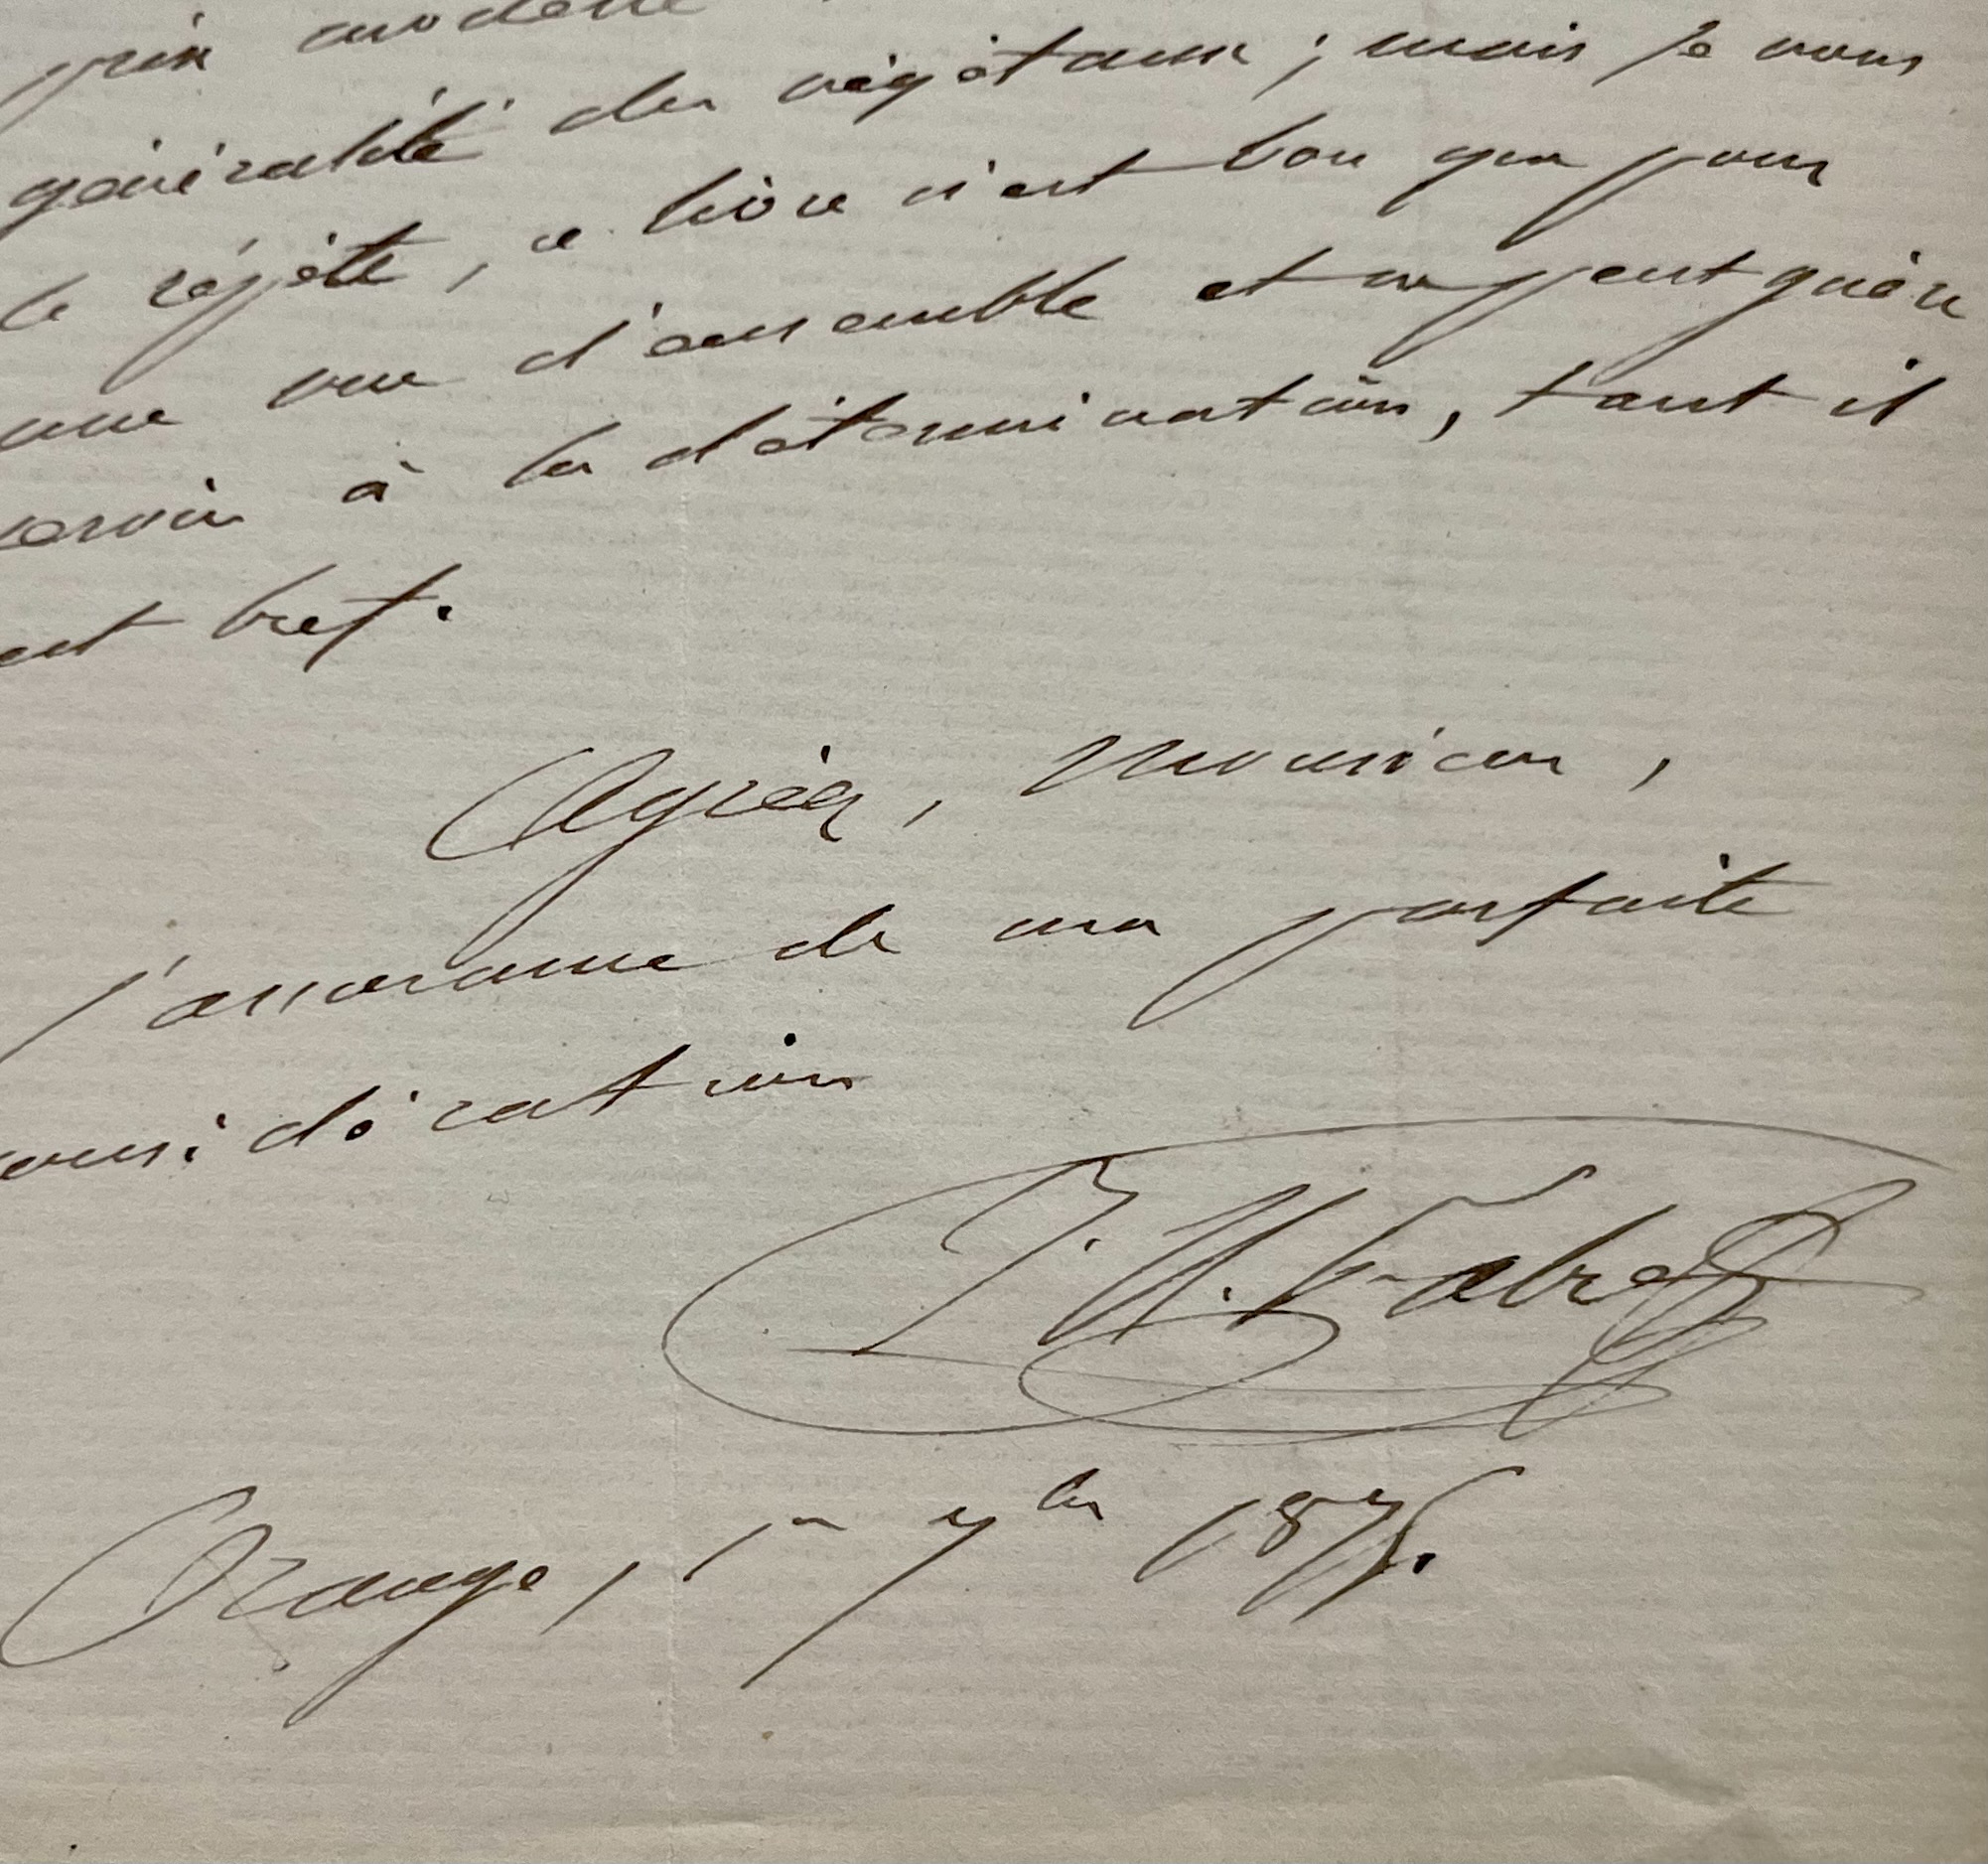 prix modeste
généralité des végétaux ; mais je vous
le répète, ce livre n'est bon que pour
une vue d'ensemble et ne peut guère
servir à la détermination, tant il
est bref.
Agréez, Monsieur,
l'assurance de ma parfaite
considération
J. H. Fabre
Orange, 1er 7bre 1875.